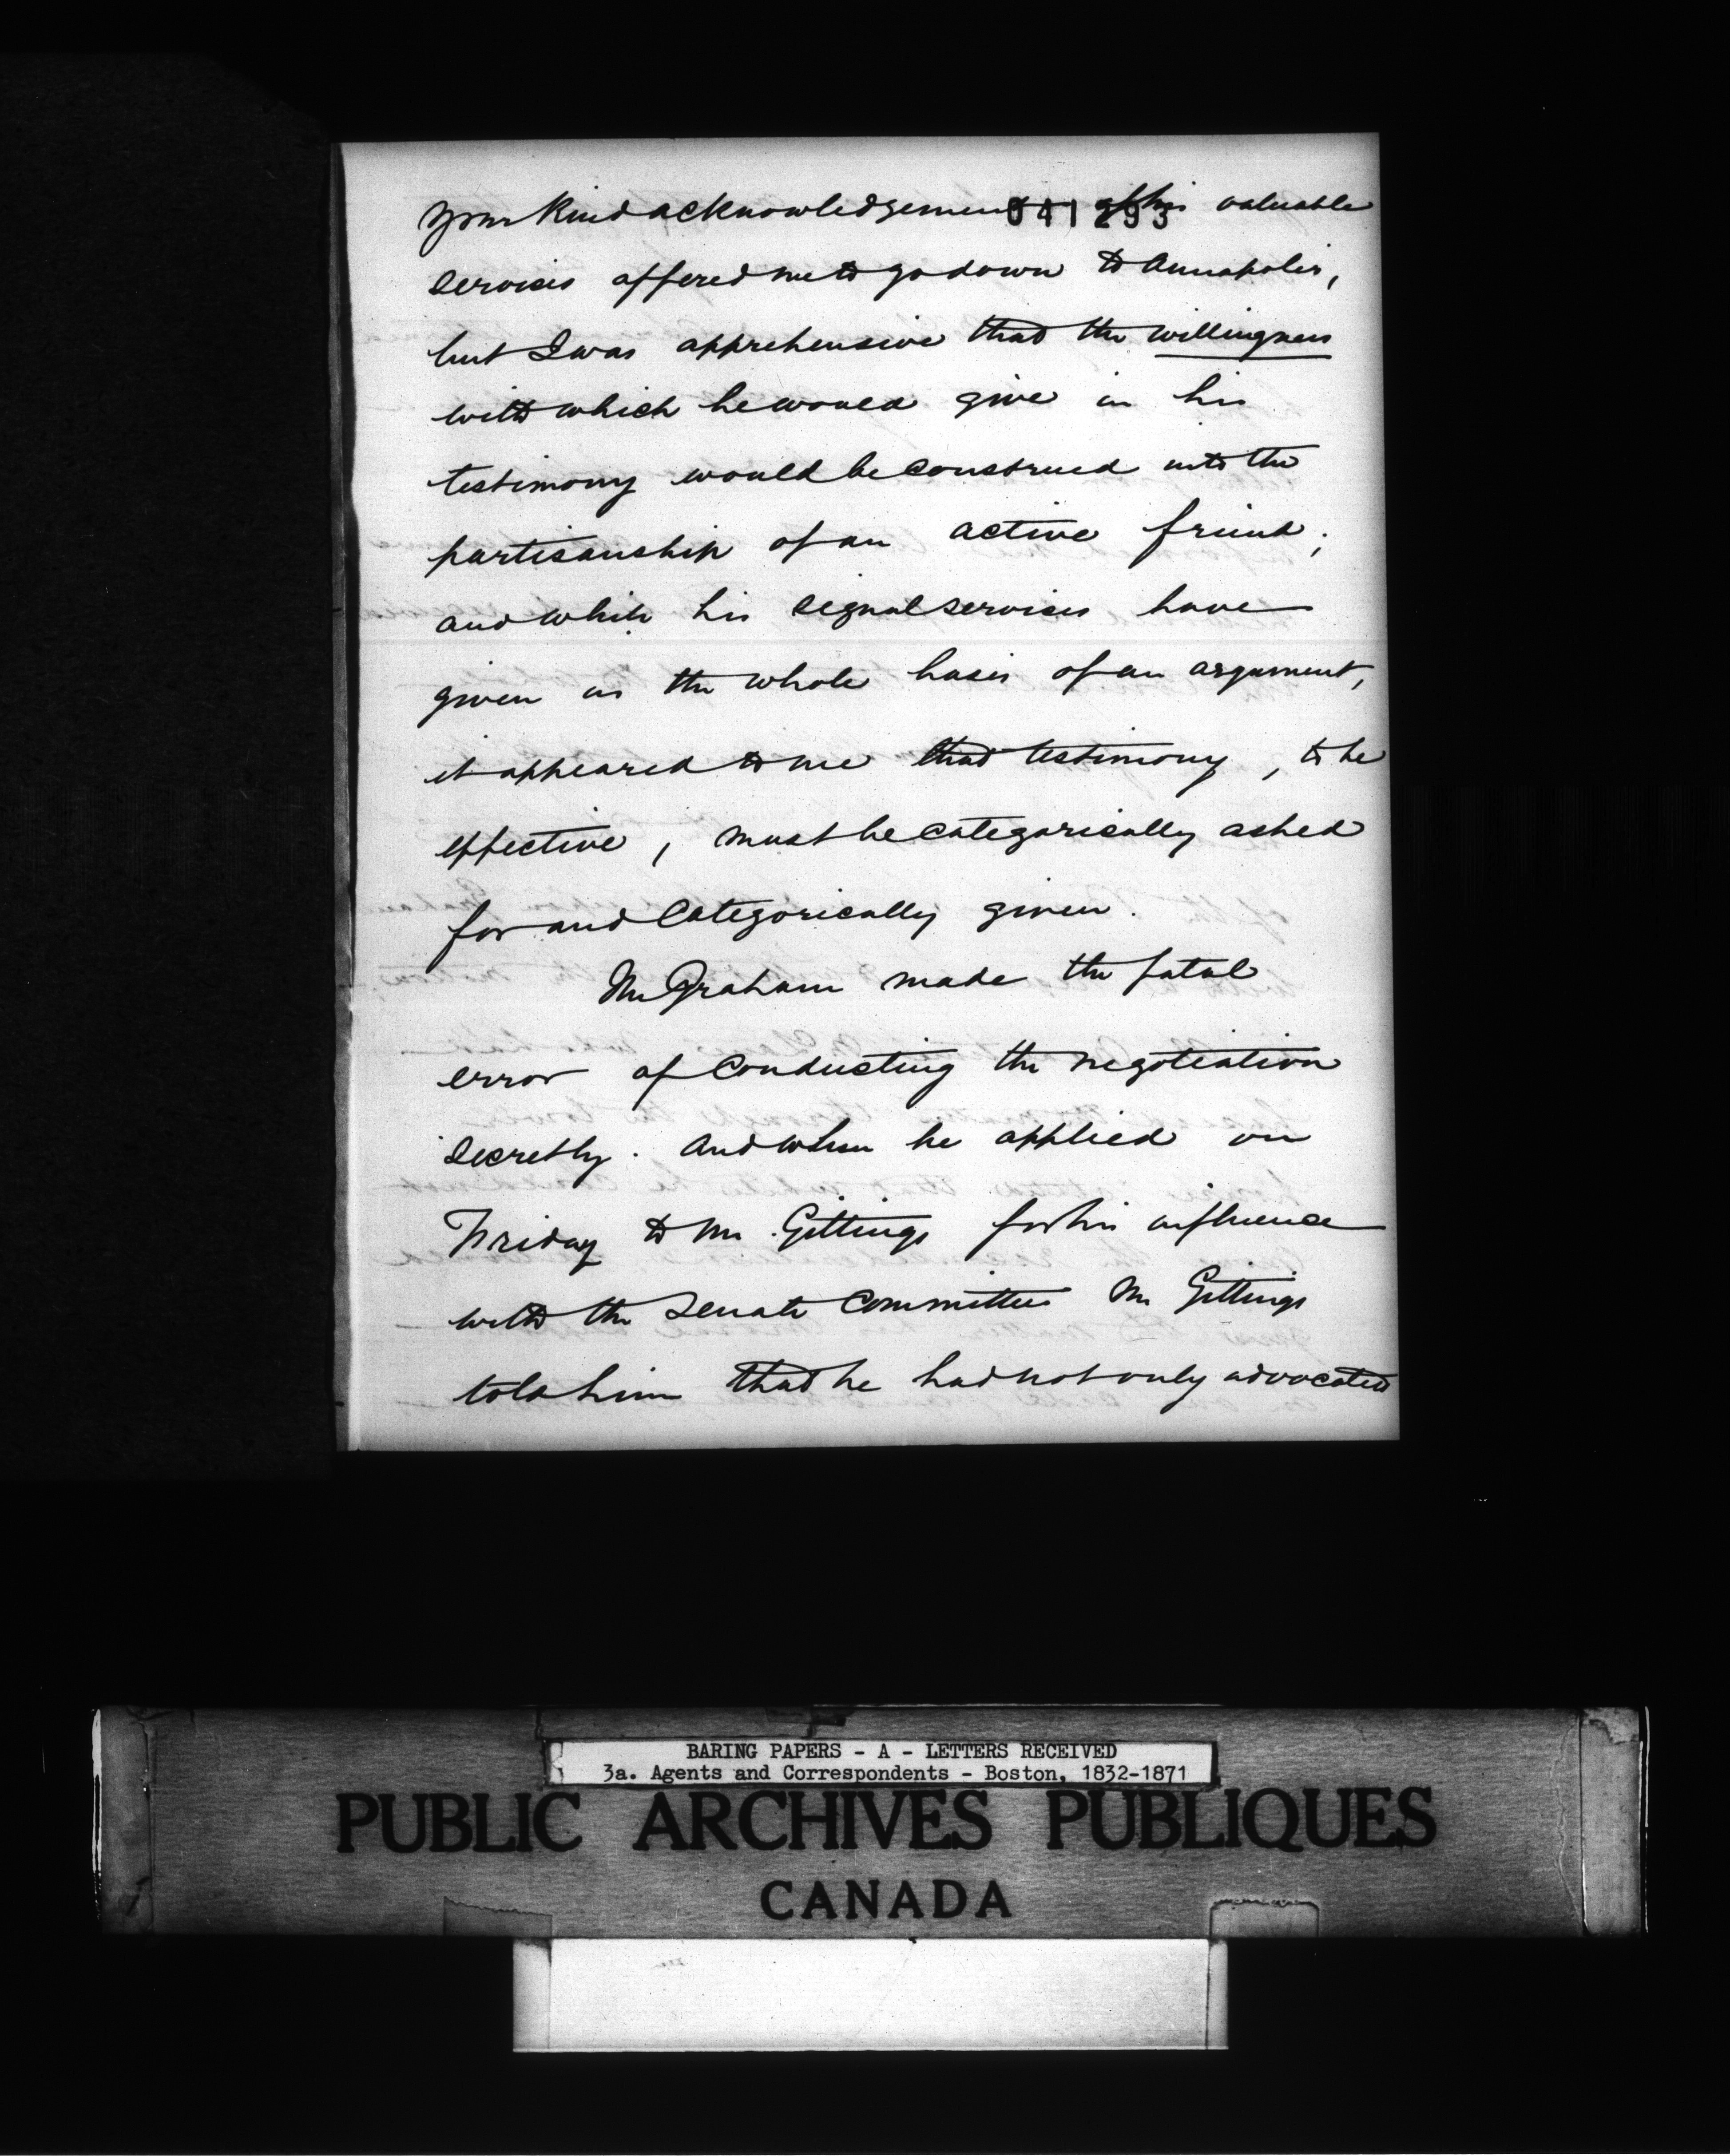 your kind acknowledgement of his valuable
041293
services offered me to go down to Annapolis,
but I was apprehensive that the willingness
with which he would give in his
testimony would be construed into the
partisanship of an active friend;
and while his signal services have
given us the whole basis of an argument,
it appeared to me that testimony, to be
effective, must be categorically asked
for and categorically given.
Mr Graham made the fatal
error of conducting the negotiation
secretly. And when he applied on
Friday to Mr. Gittings for his influence
with the Senate Committee Mr Gittings
told him that he had not only advocated
BARING PAPERS - A - LETTERS RECEIVED
3a. Agents and Correspondents - Boston, 1832-1871
PUBLIC ARCHIVES PUBLIQUES
CANADA